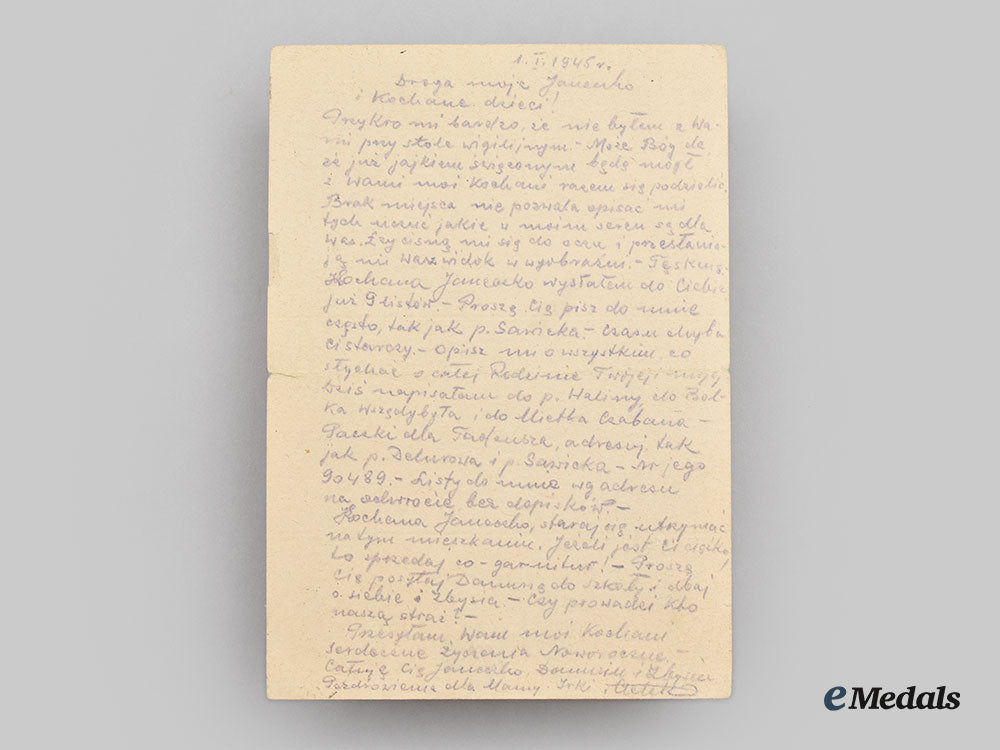 1. I. 1945 r.
Droga moja Janeczko
i Kochane dzieci!
Przykro mi bardzo, że nie byłem z Wa-
mi przy stole wigilijnym. - Może Bóg da
że już jajkiem święconym będę mógł
z Wami moi Kochani razem się podzielić.
Brak miejsca nie pozwala opisać mi
tych uczuć jakie w moim sercu są dla
Was. Łzy cisną mi się do oczu i przesłania-
ją mi Wasz widok w wyobraźni. - Tęsknię.
Kochana Janeczko wysłałem do Ciebie
już 9 listów. - Proszę Cię pisz do mnie
często, tak jak p. Sawicka - Czasu chyba
Ci starczy. - Opisz mi o wszystkim, co
słychać o całej Rodzinie Twojej i mojej
Dziś napisałam do p. Haliny, do Bol-
ka i do Mietka Czabana -
Paczki dla Tadeusza, adresuj tak
jak p. i p. Sawicka - Nr jego
90489. - Listy do mnie wg adresu
na odwrocie bez dopisków. -
Kochana Janeczko, staraj się utrzymać
na tym mieszkaniu. Jeżeli jest Ci ciężko
to sprzedaj co - garnitur! - Proszę
Cię posyłaj Danusię do szkoły i dbaj
o siebie i Zbysia. - Czy prowadzi kto
naszą straż? -
Przesyłam Wam moi Kochani
serdeczne życzenia Noworoczne. -
Całuję Cię Janeczko, Danusię i Zbysia
Pozdrowienia dla Mamy, Irki
eMedals